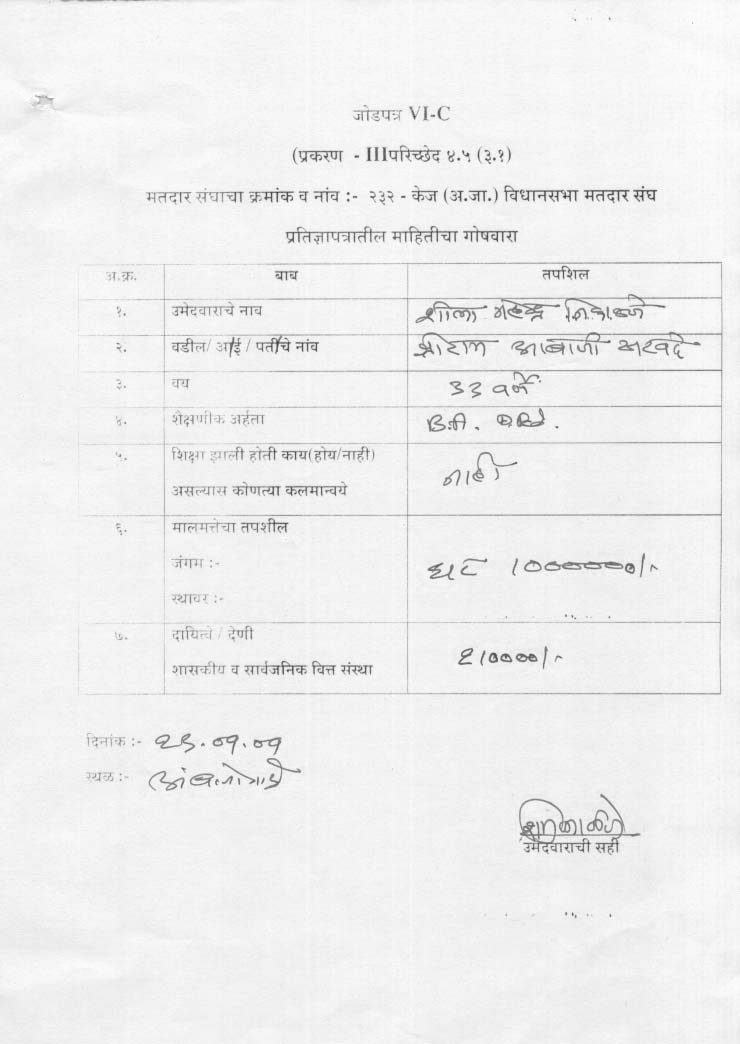 जोडपत्र VI-C
(प्रकरण - IIIपरिच्छेद ४.५ (३.१)
मतदार संघाचा क्रमांक व नांव :- २३२ - केज (अ.जा.) विधानसभा मतदार संघ
प्रतिज्ञापत्रातील माहितीचा गोषवारा
अ.क्र. बाब तपशिल
१. उमेदवाराचे नाव शीला महेंद्र
२. वडील/ आई / पतीचे नांव श्रीराम आबाजी
३. वय 33 वर्षे
४. शैक्षणीक अर्हता
५. शिक्षा झाली होती काय(होय/नाही) नाही
असल्यास कोणत्या कलमान्वये
६. मालमत्तेचा तपशील
जंगम :- घर 1000000/-
स्थावर :-
७. दायित्वे / देणी
शासकीय व सार्वजनिक वित्त संस्था 210000/-
दिनांक :- 23.09.09
स्थळ :-
उमेदवाराची सही